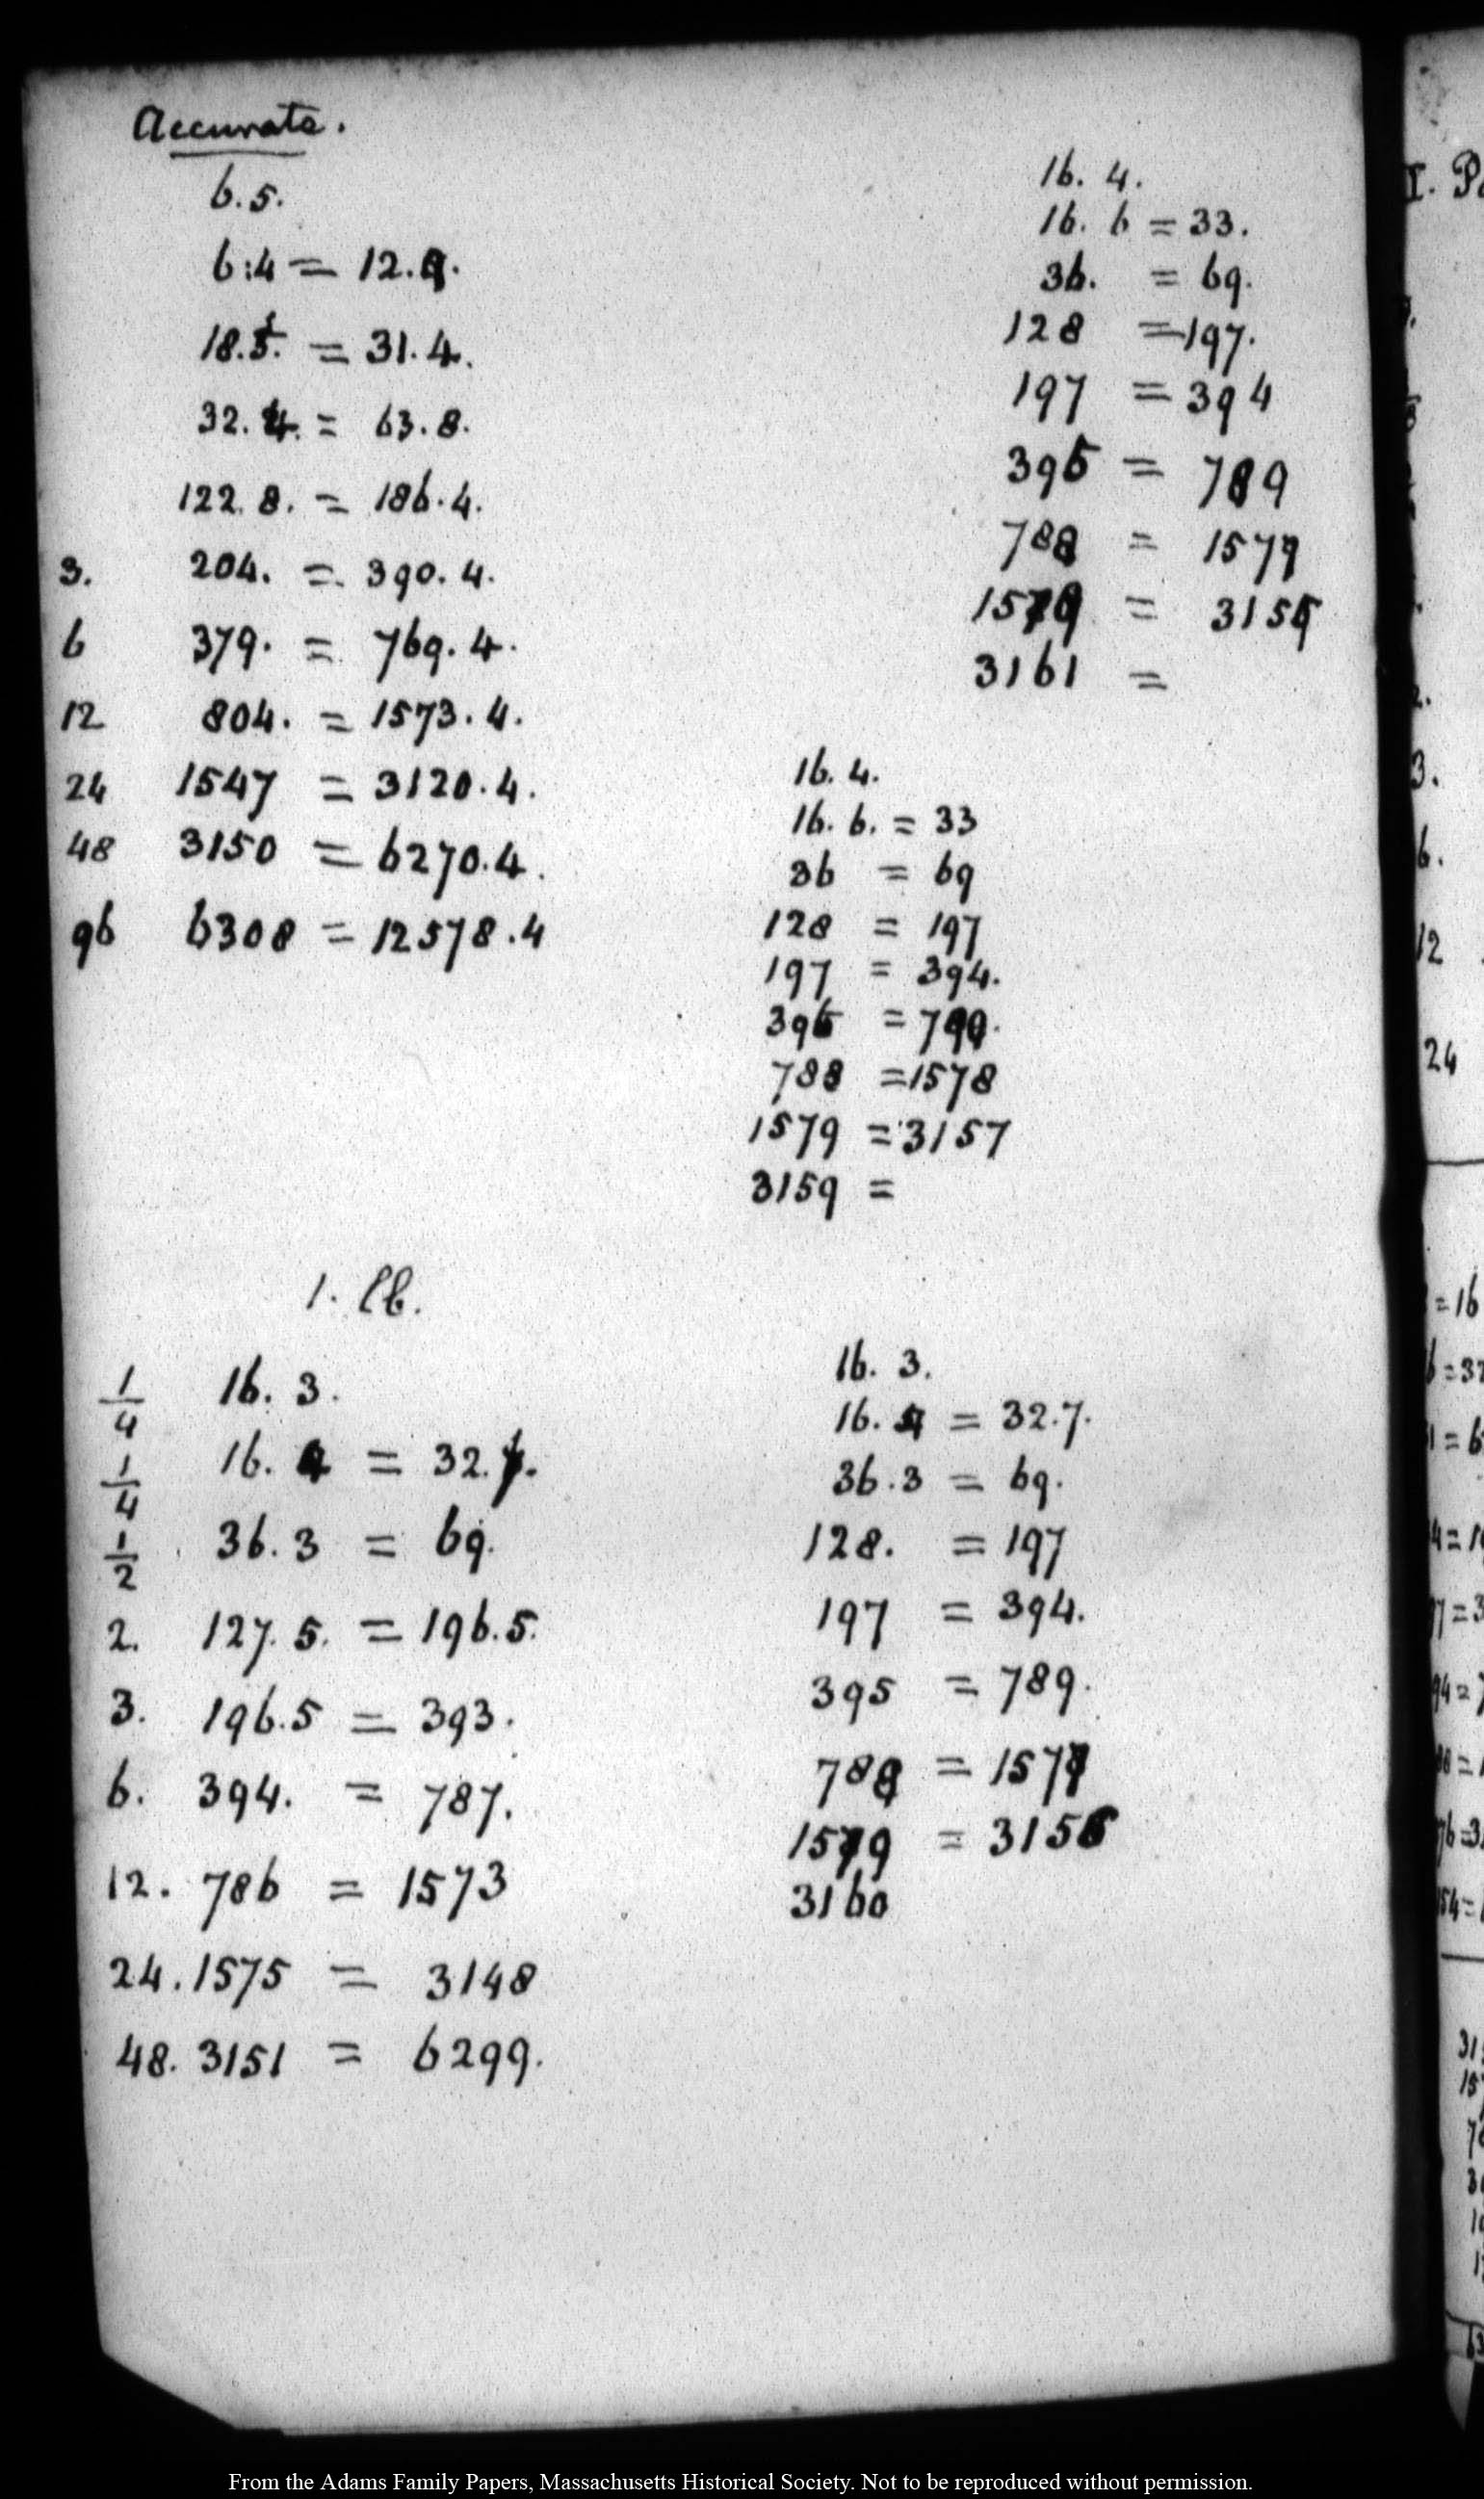 Accurate.
6.5.
6:4 = 12.9.
18.5. = 31.4.
32.4. = 63.8.
122.8. = 186.4.
3. 204. = 390.4.
6 379. = 769.4.
12 804. = 1573.4.
24 1547 = 3120.4.
48 3150 = 6270.4.
96 6308 = 12578.4
16. 4.
16. 6 = 33.
36. = 69.
128 = 197.
197 = 394
395 = 789
788 = 1577
1579 = 3155
3161 =
16. 4.
16. 6. = 33
36 = 69
128 = 197
197 = 394.
395 = 790.
788 = 1578
1579 = 3157
3159 =
1. lb.
1/4 16. 3.
1/4 16. 4 = 32.7.
1/2 36.3 = 69.
2. 127.5. = 196.5.
3. 196.5 = 393.
6. 394. = 787.
12. 786 = 1573
24. 1575 = 3148
48. 3151 = 6299.
16. 3.
16. 4 = 32.7.
36.3 = 69.
128. = 197
197 = 394.
395 = 789.
788 = 1577
1579 = 3156
3160
I.
3.
6.
12
24
From the Adams Family Papers, Massachusetts Historical Society. Not to be reproduced without permission.